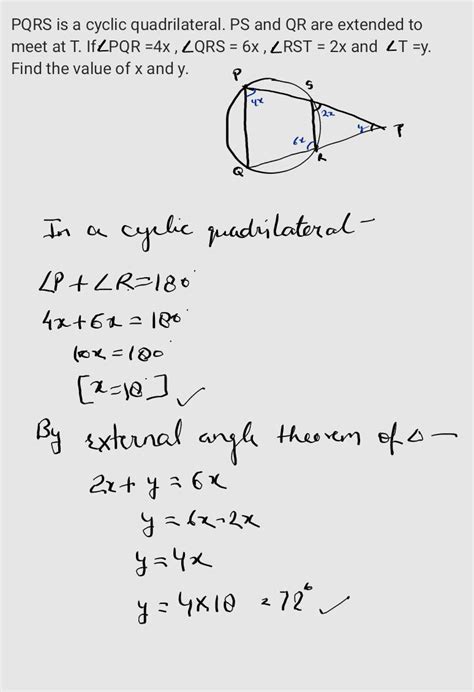 PQRS is a cyclic quadrilateral. PS and QR are extended to
meet at T. If∠PQR =4x , ∠QRS = 6x , ∠RST = 2x and ∠T =y.
Find the value of x and y.
P
S
4x
2x
y
T
6x
Q
R
In a cyclic quadrilateral –
∠P + ∠R = 180°
4x + 6x = 180°
10x = 180
[x = 18°] ✓
By external angle theorem of Δ –
2x + y = 6x
y = 6x - 2x
y = 4x
y = 4×18 = 72° ✓